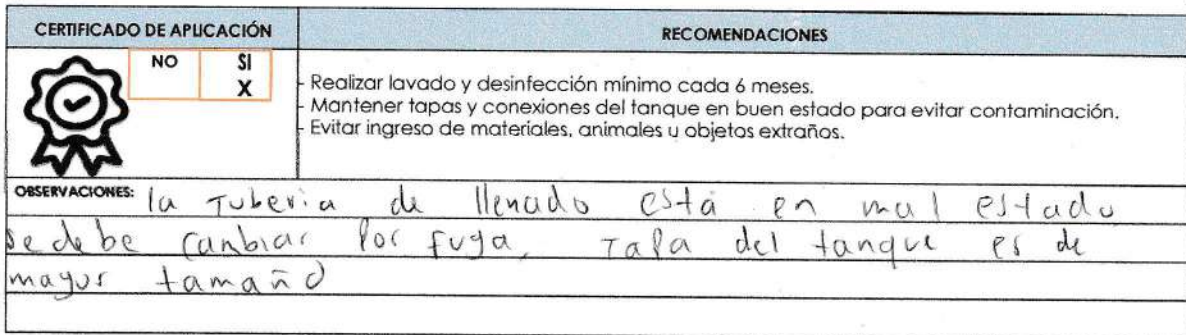 CERTIFICADO DE APLICACIÓN
RECOMENDACIONES
NO SI
X
- Realizar lavado y desinfección mínimo cada 6 meses.
- Mantener tapas y conexiones del tanque en buen estado para evitar contaminación.
- Evitar ingreso de materiales, animales u objetos extraños.
OBSERVACIONES: la Tuberia de llenado está en mal estado
se debe cambiar por fuga, Tapa del tanque es de
mayor tamaño